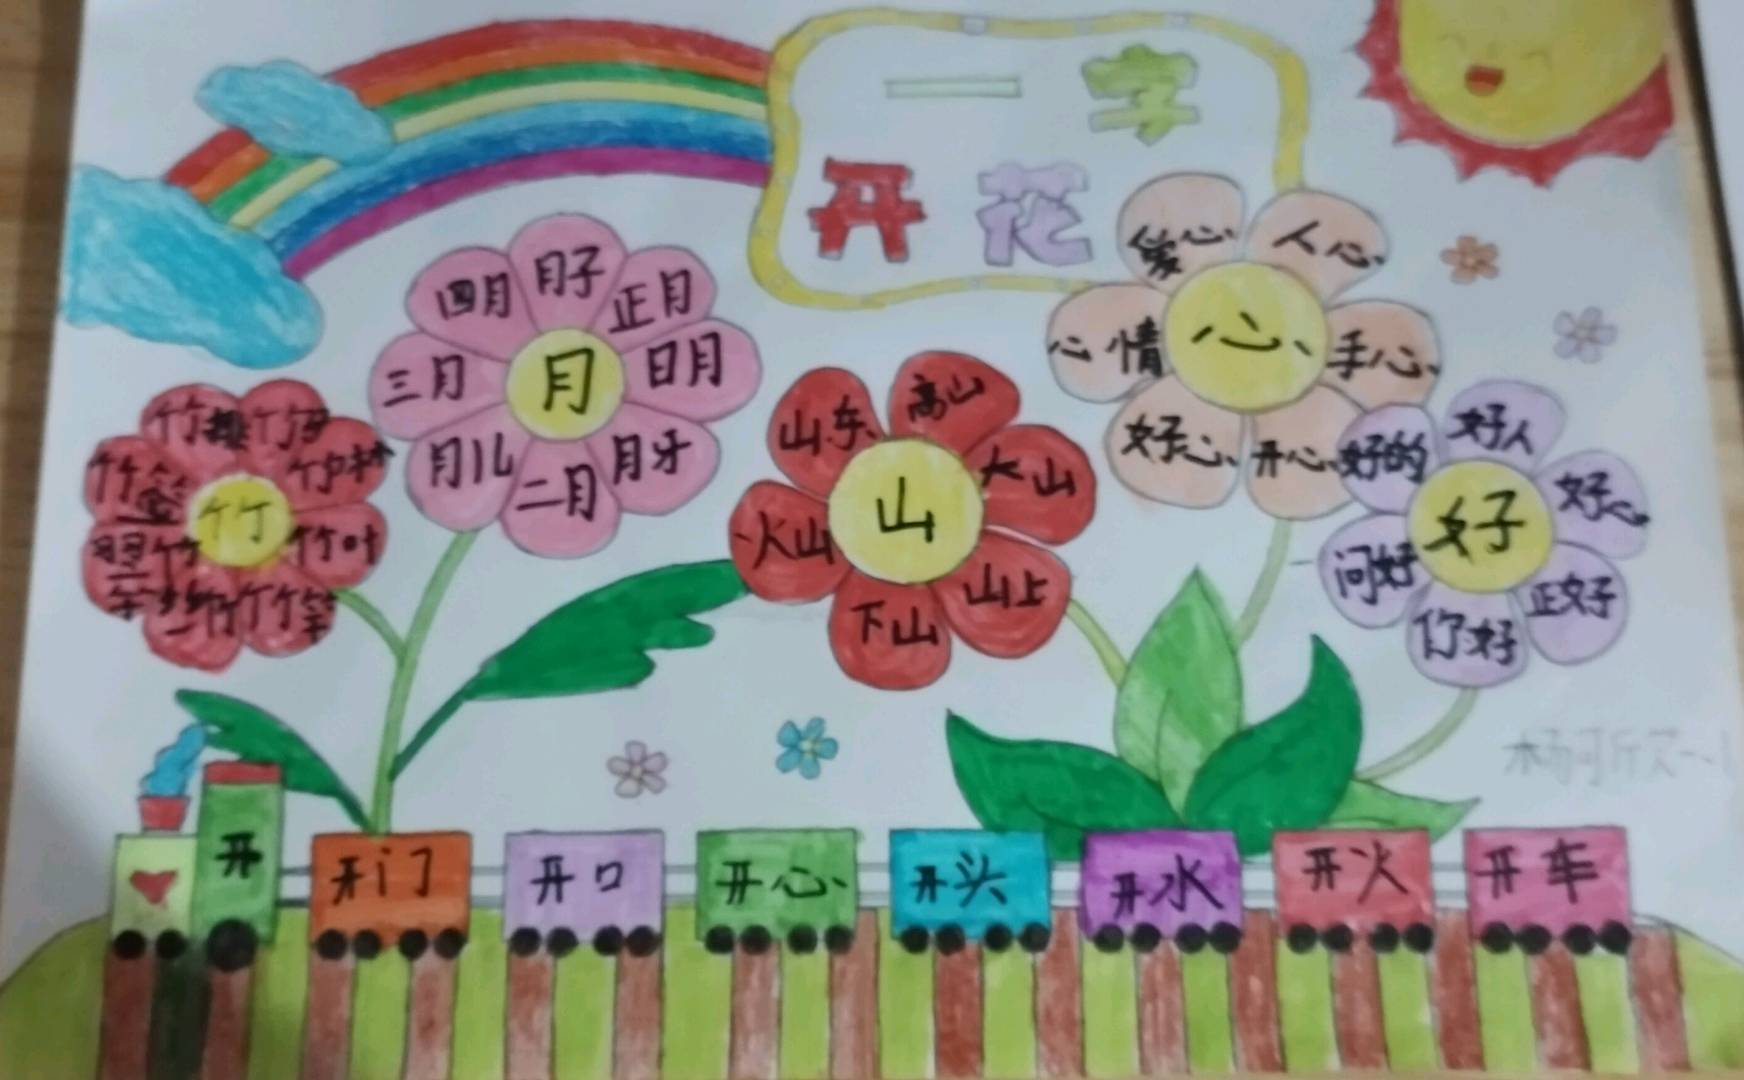 一字
开花
月
月子
正月
日月
月牙
二月
月儿
三月
四月
竹
竹林
竹叶
竹竿
山
高山
大山
山上
下山
火山
山东
心
爱心
人心
手心
开心
好心
心情
好
好人
好心
正好
你好
问好
好的
开
开门
开口
开心
开头
开水
开火
开车